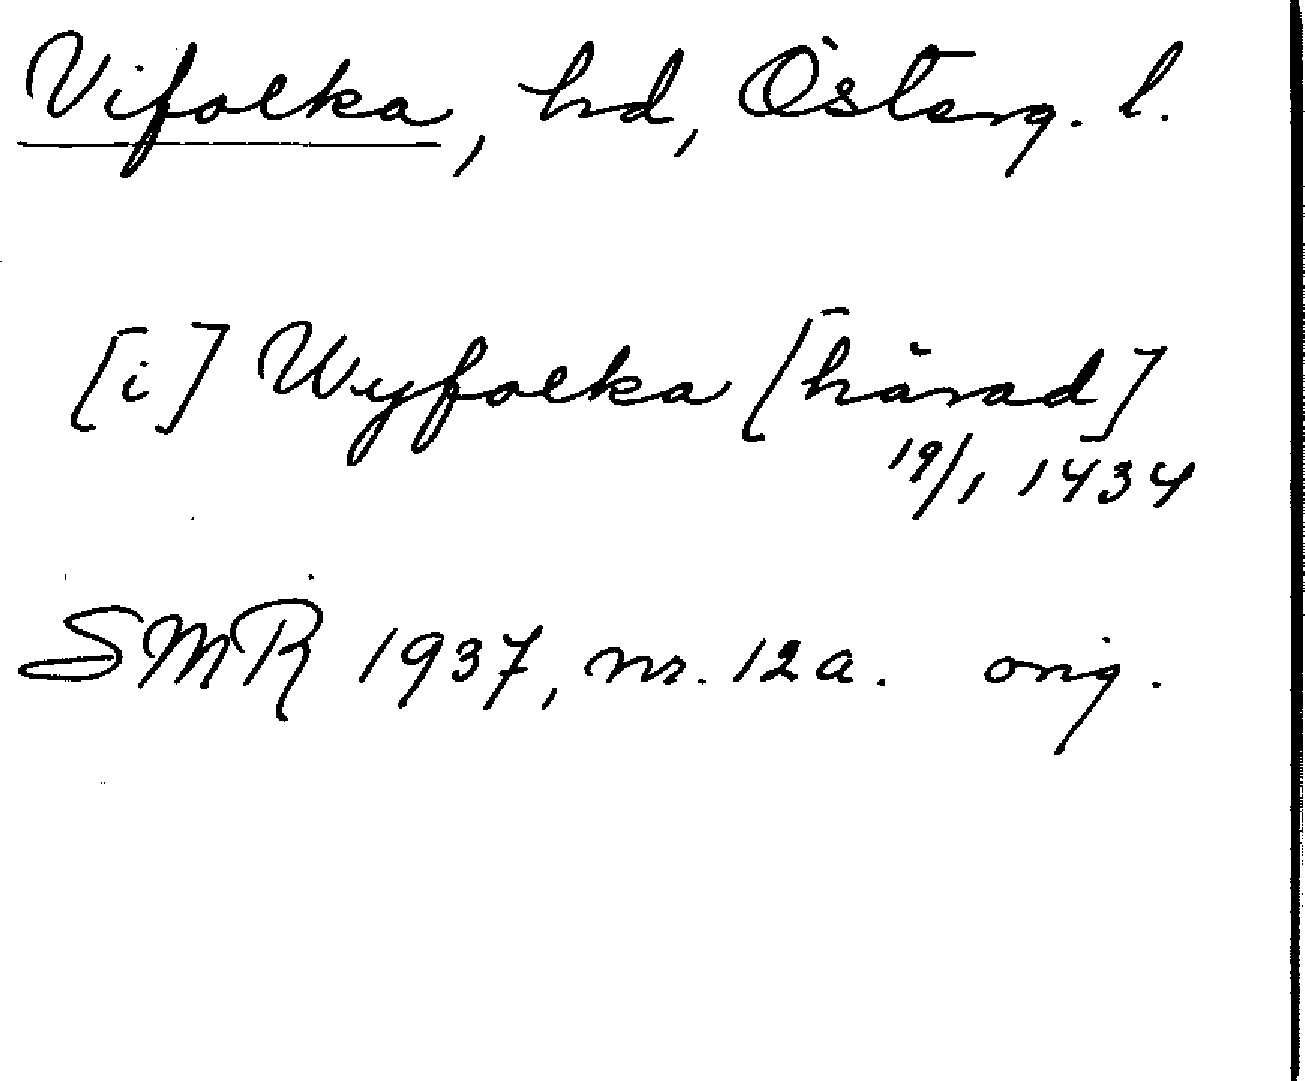 Vifolka, hd, Österg. l.
[i] Wyfolka [härad]
19/1 1434
SMR 1937, nr. 12a. orig.